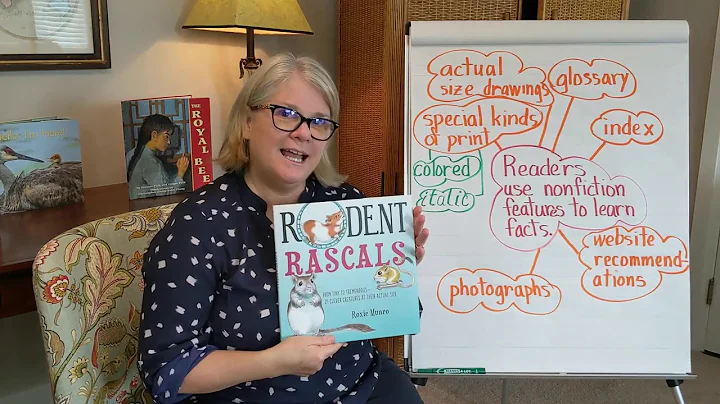 THE
ROYAL
BEE
RODENT
RASCALS
FROM TINY TO TREMENDOUS—
21 CLEVER CREATURES AT THEIR ACTUAL SIZE
Roxie Munro
actual
size drawings
glossary
special kinds
of print
index
colored
italic
Readers
use nonfiction
features to learn
facts.
website
recommend-
ations
photographs